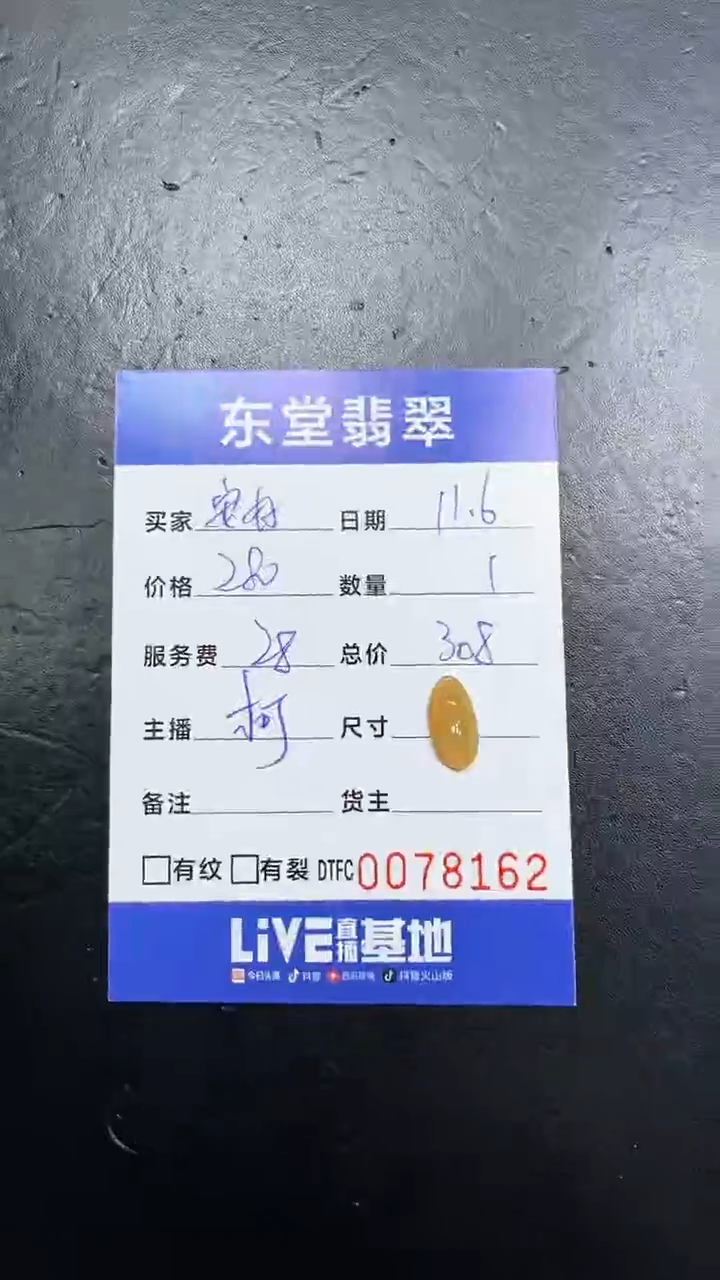 东堂翡翠
买家 日期 11.6
价格 280 数量 1
服务费 28 总价 308
主播 柯 尺寸
备注 货主
有纹 有裂 DTFC 0078162
LiVE直播基地
今日头条 抖音 西瓜视频 抖音火山版